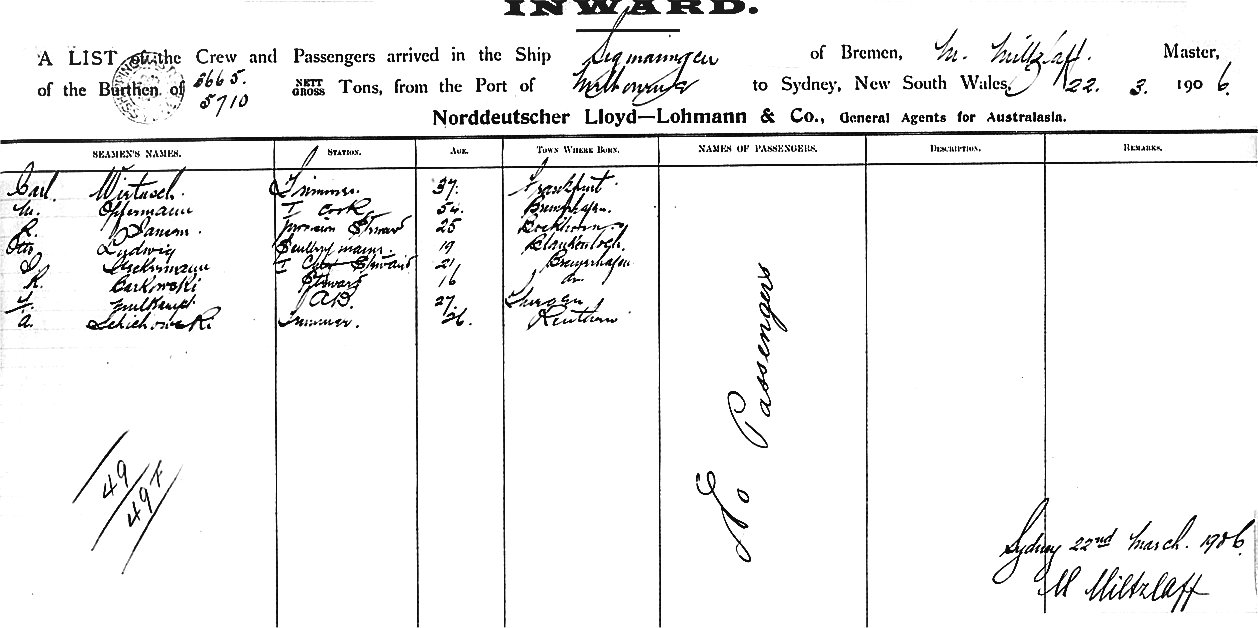 INWARD.
A LIST of the Crew and Passengers arrived in the Ship Sigmaringen of Bremen, M. Miltzlaff. Master,
of the Burthen of 3665. 5710 NETT GROSS Tons, from the Port of Melbourne to Sydney, New South Wales, 22. 3. 1906.
Norddeutscher Lloyd—Lohmann & Co., General Agents for Australasia.
SEAMEN'S NAMES. STATION. AGE. TOWN WHERE BORN. NAMES OF PASSENGERS. DESCRIPTION. REMARKS.
Carl Trimmer. 37. Frankfurt
M. Offermann I Cook 54. Bremerhafen.
R. Provision Steward 25
Otto Ludwig 19 Blankenloch.
I Steward 21 Bremerhafen
K. Steward 16 do
AB. 27.
A. Trimmer. 26.
No Passengers
49
49+
Sydney 22nd March. 1906.
M Miltzlaff